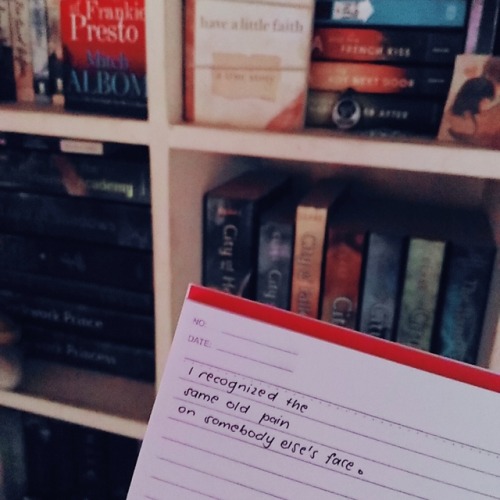 of Frankie
Presto
Mitch
ALBOM
have a little faith
A TRUE STORY
FRENCH KISS
NEXT DOOR
AFTER
City of
City
City of
City
NO:
DATE:
I recognized the
same old pain
on somebody else's face.